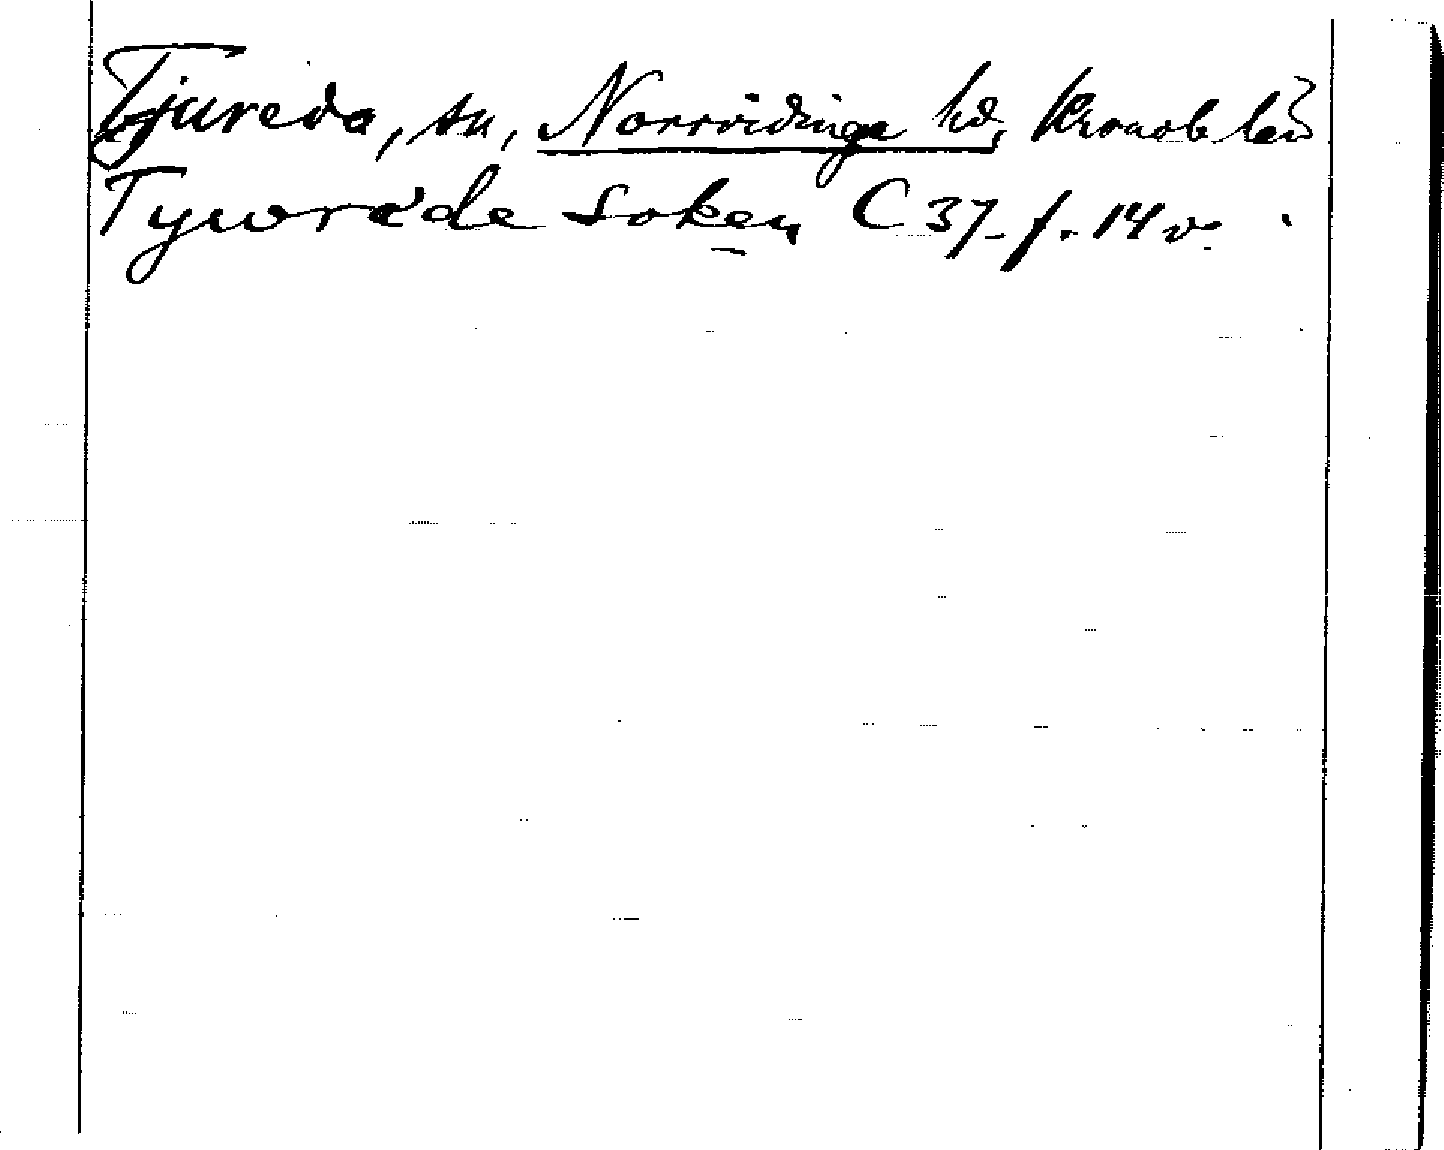 Tjureda, sn, Norrvidinge hd, Kronob län
Tyworæde Soken C 37 f. 14 v.